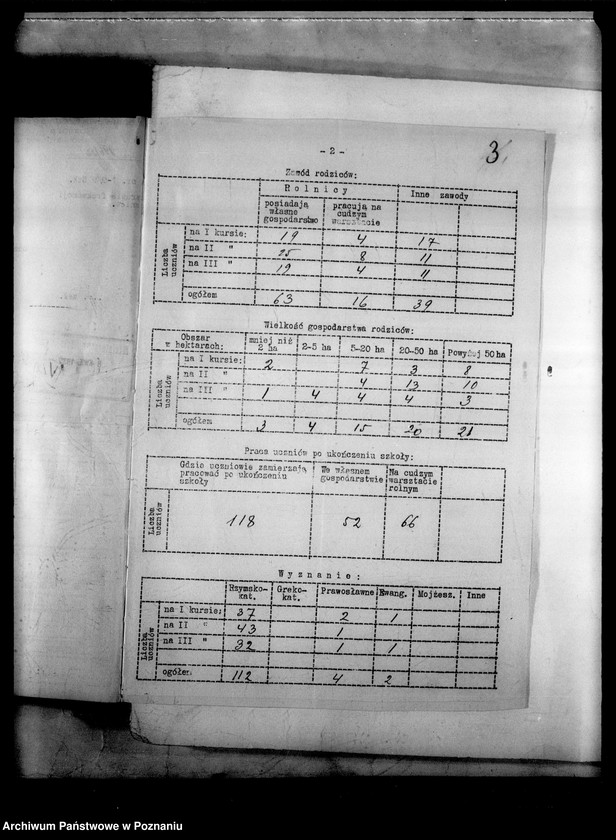 - 2 -
3
Zawód rodziców:
Rolnicy
Inne zawody
posiadają własne gospodarstwo
pracują na cudzym warsztacie
Liczba uczniów
na I kursie: 19 4 17
na II " 25 8 11
na III " 19 4 11
ogółem 63 16 39
Wielkość gospodarstwa rodziców:
Obszar w hektarach: mniej niż 2 ha 2-5 ha 5-20 ha 20-50 ha Powyżej 50 ha
Liczba uczniów
na I kursie: 2 7 3 8
na II " 4 13 10
na III " 1 4 4 4 3
ogółem 3 4 15 20 21
Praca uczniów po ukończeniu szkoły:
Gdzie uczniowie zamierzają pracować po ukończeniu szkoły
We własnem gospodarstwie
Na cudzym warsztacie rolnym
Liczba uczniów 118 52 66
Wyznanie:
Rzymsko-kat. Greko-kat. Prawosławne Ewang. Mojżesz. Inne
Liczba uczniów
na I kursie: 37 2 1
na II " 43 1
na III " 32 1 1
ogółem 112 4 2
Archiwum Państwowe w Poznaniu